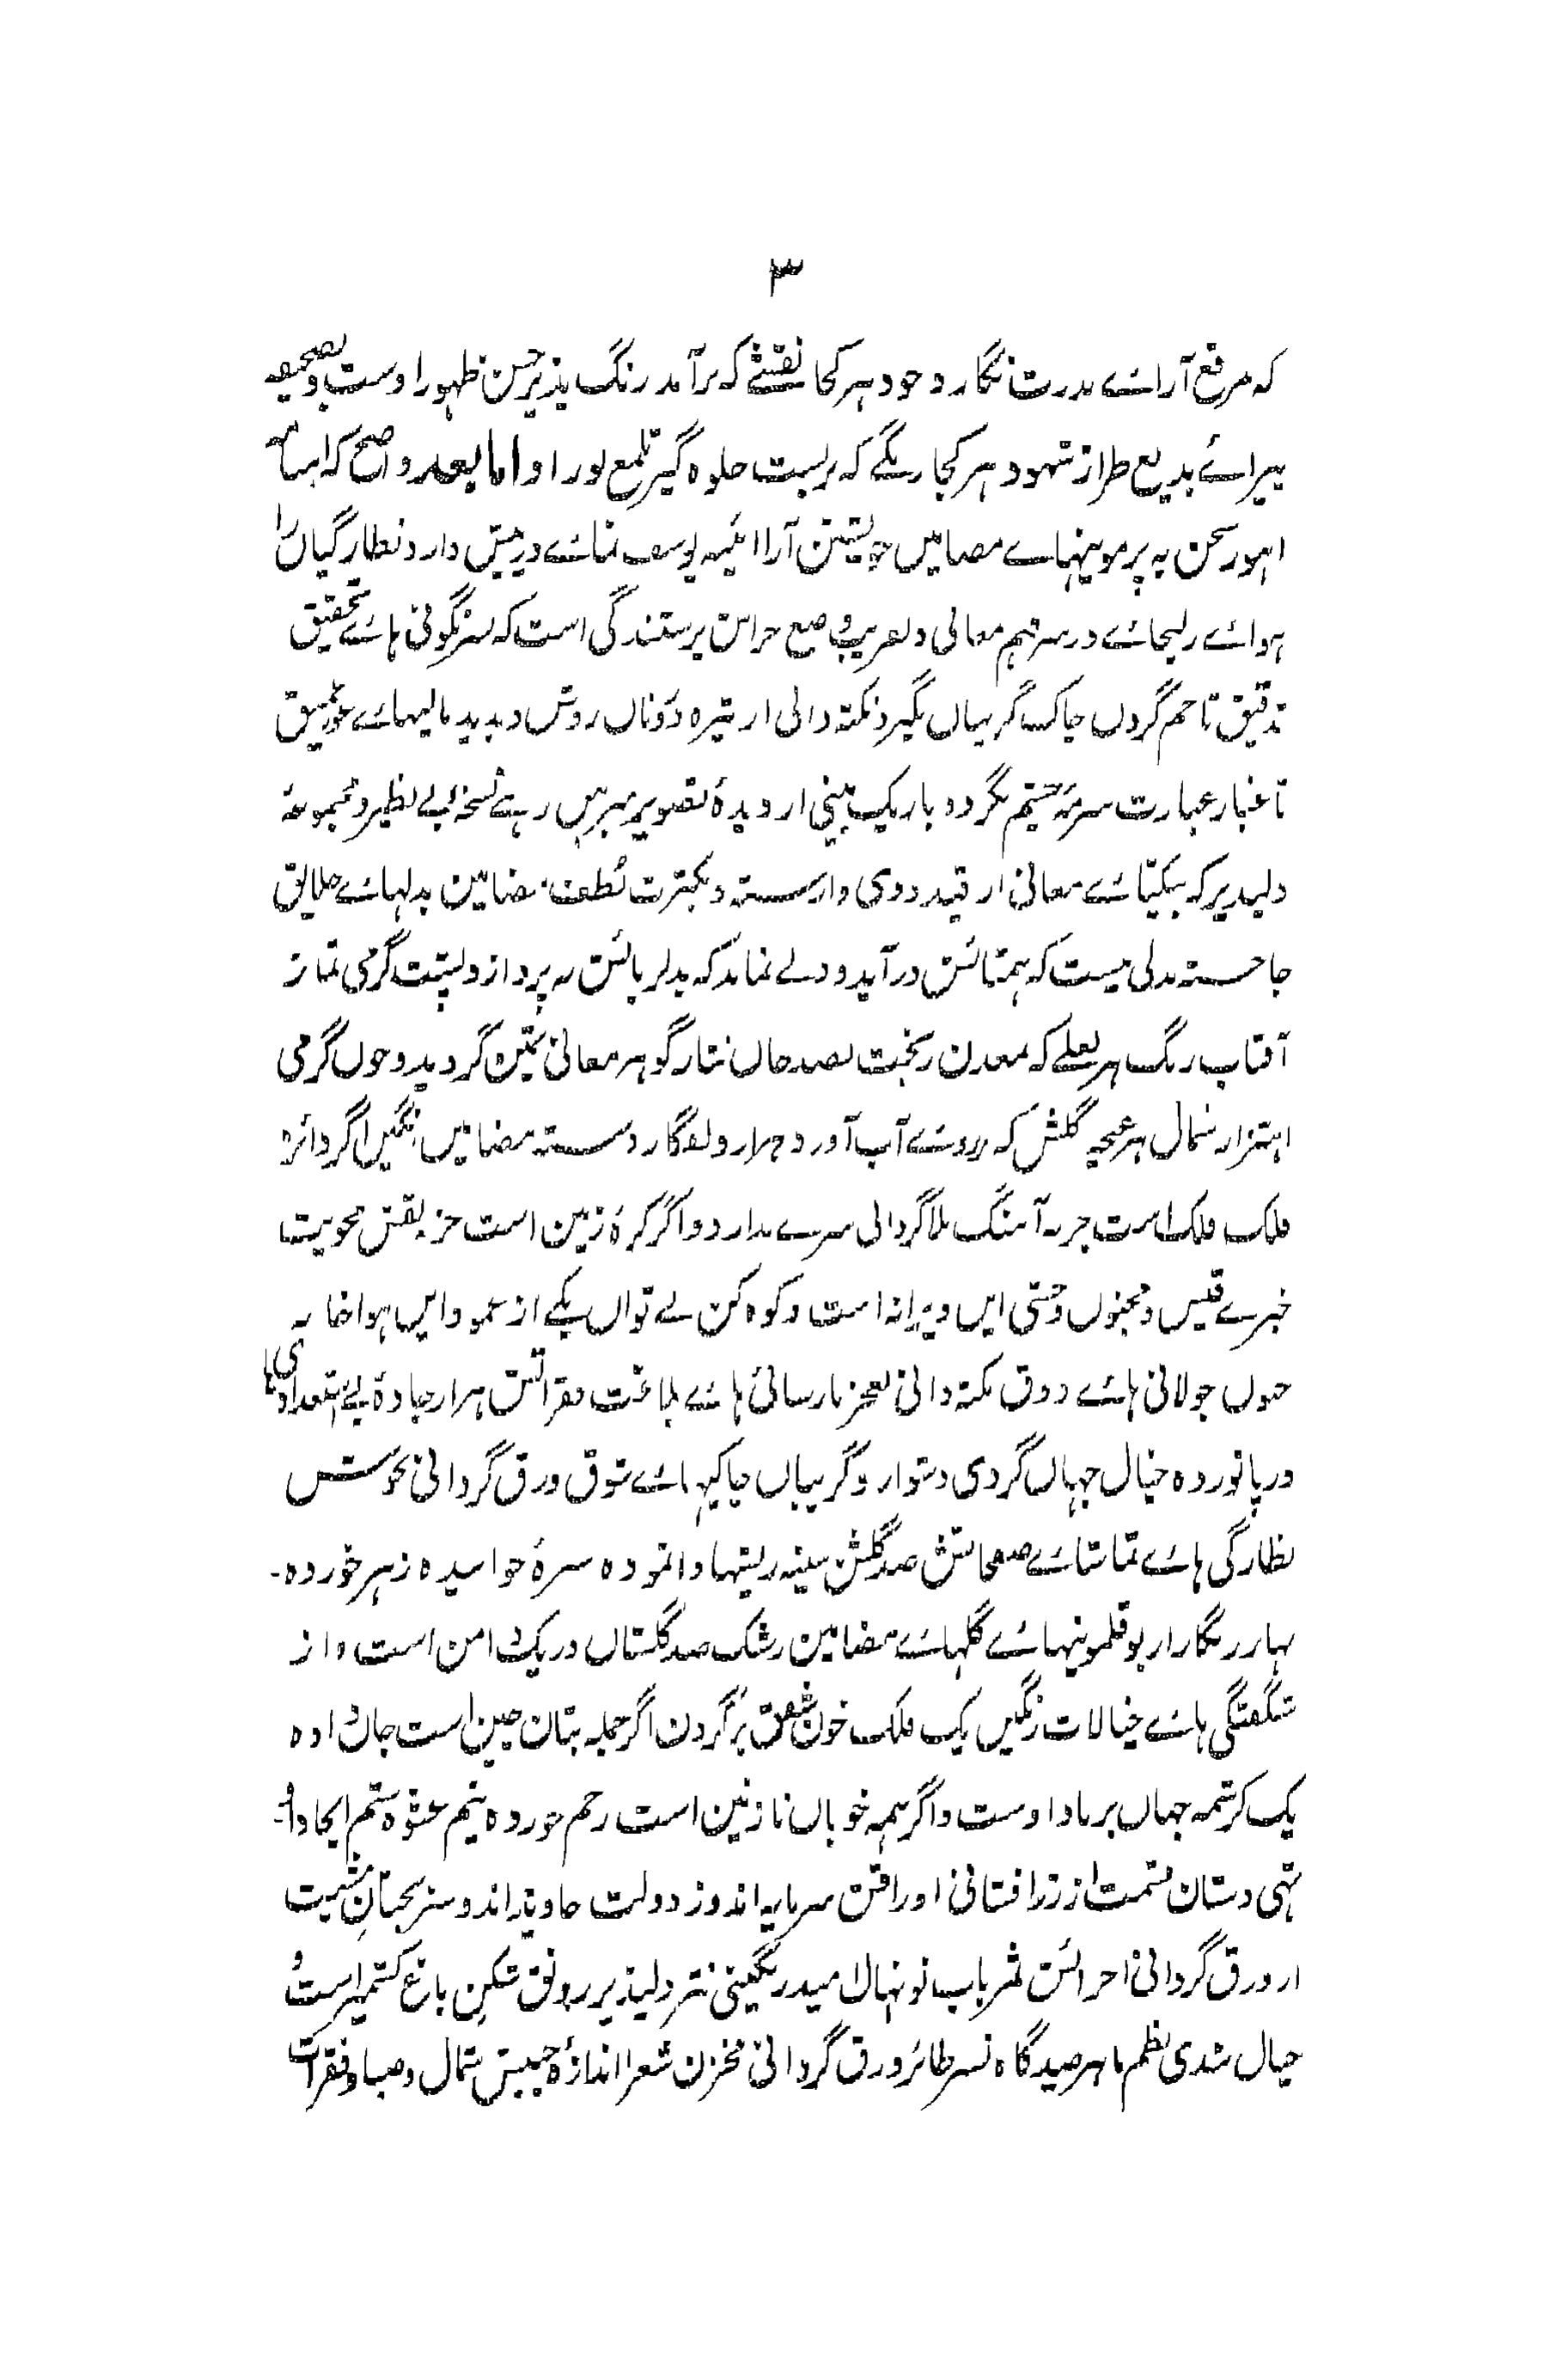 ۳
که مرقع آرائے ندرت نگار وجود ہر کجا نقشے که برآمد رنگ پذیر حسن ظہور اوست و بصحیفه
پیرائے بدیع طراز شہود ہر کجا رنگے که بربست جلوه گیر تلمع نور او اما بعد واضح که
سخن به مضامین خویشتن آرا آئینه یوسف نمائے در پیش دارد نظارگیان را
ہوائے زلیخائے در سر فہم معانی دلفریب وضع پرستندگی است که سرنگونی ہائے تحقیق
تدقیق تا خم گردن چاک گریبان نگیرد نکته دانی از تیره دونان روش و بدید مالیہائے غور عمیق
تا غبار عبارت سرمۂ چشم نگردد باریک بینی از دیدۂ تصویر مبرہن رہے نسخۂ بے نظیر و مجموعۂ
دلپذیر که بیکتائے معانی از قید دوی وارسته و بکثرت لطف مضامین بدلہائے خلایق
جا جسته بدلی نیست که ہمتائش درآید و دلے نماند که بدلربائش نه پردازد پشت گرمی تماز
آفتاب رنگ ہر لعلے که معدن ریخت بصد جان نثار گوہر معانی گردید و چون گرمی
اہتزاز شمال ہر غنچه گلشن که بروئے آب آورد ہزار دسته مضامین رنگین اگر دائرۂ
فلک فلک است جز به آہنگ بلاگردانی سرے ندارد و اگر کرۂ زمین است جز نقش محویت
خبرے قیس و مجنون وحشی این ویرانه است و کوه کن بے توان یکے از این ہوا خانه
چون جولانی ہائے ذوق نکته دانی بعجز نارسائی ہائے بلاغت فقراتش ہزار جادۂ بے استعدادی ہا
در پا نورده خیال جہان گردی دشوار و گریبان چاکیہائے شوق ورق گردانی
نظارگی ہائے تماشائے صفحاتش صد گلشن سینه ریشہا وانموده سبزۂ خوابیده زہر خورده۔
بہار رنگ از بوقلمونیہائے گلہائے مضامین رشک صد گلستان در یک دامن است و از
شگفتگی ہائے خیالات رنگین یک فلک خون شفق بر گردن اگر جمله بتان چین است جان داده
یک کرشمه جہان برباد اوست و اگر ہمه خوبان نازنین است زخم خورده نیم عشوه ستم ایجاد او۔
تہی دستان قسمت از زر افشانی اوراقش سرمایه اندوز دولت جاویداند و سبز بختان مشیت
از ورق گردانی اجزائش ثمریاب نونہال امید رنگینی نثر دلپذیر رونق شکن باغ کشمیر است و
خیال بندی نظم ماہر صیدگاه نسر طائر ورق گردانی مخزن شعرا اندازۂ جنبش شمال و صبا و فقرات